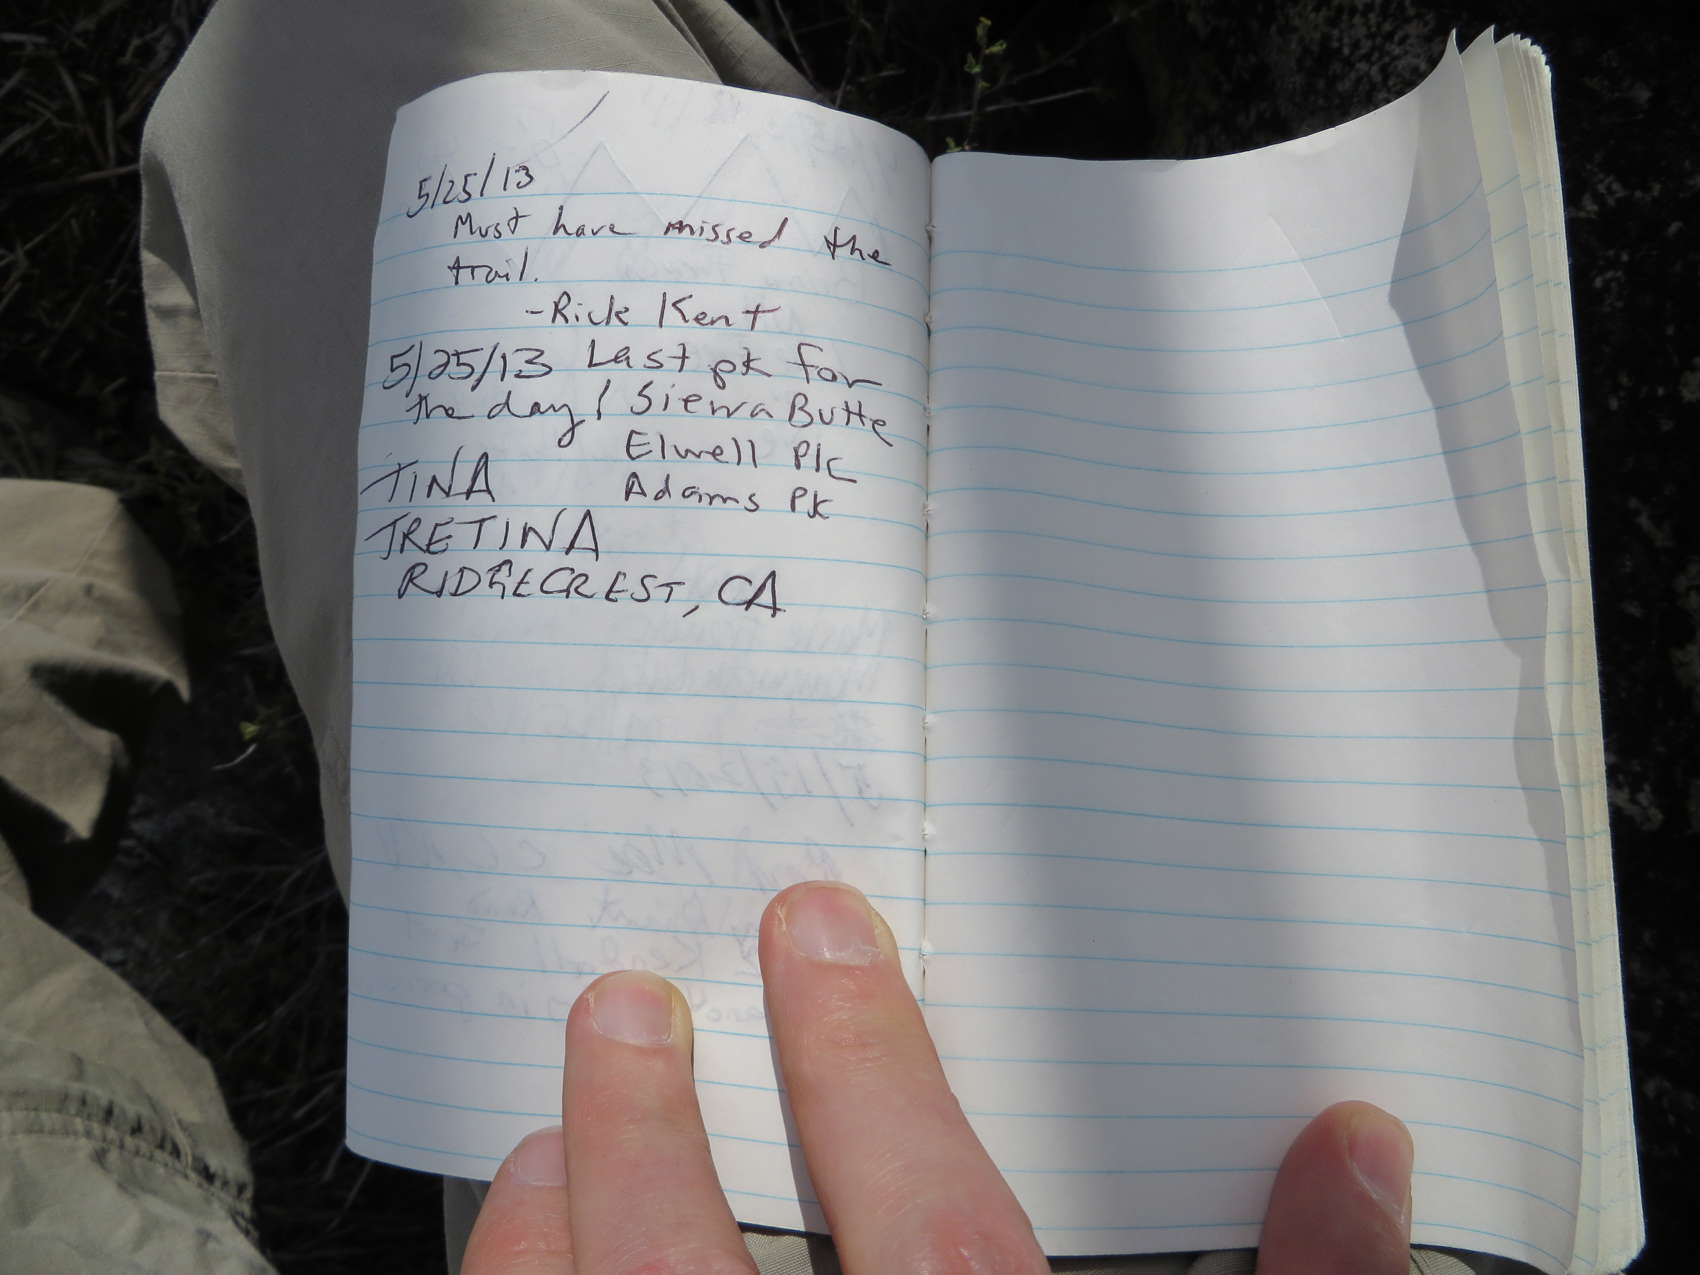 5/25/13
Must have missed the
trail.
-Rick Kent
5/25/13 Last pk for
the day! Sierra Butte
Elwell Pk
TINA Adams Pk
TRETINA
RIDGECREST, CA
5/15/2013